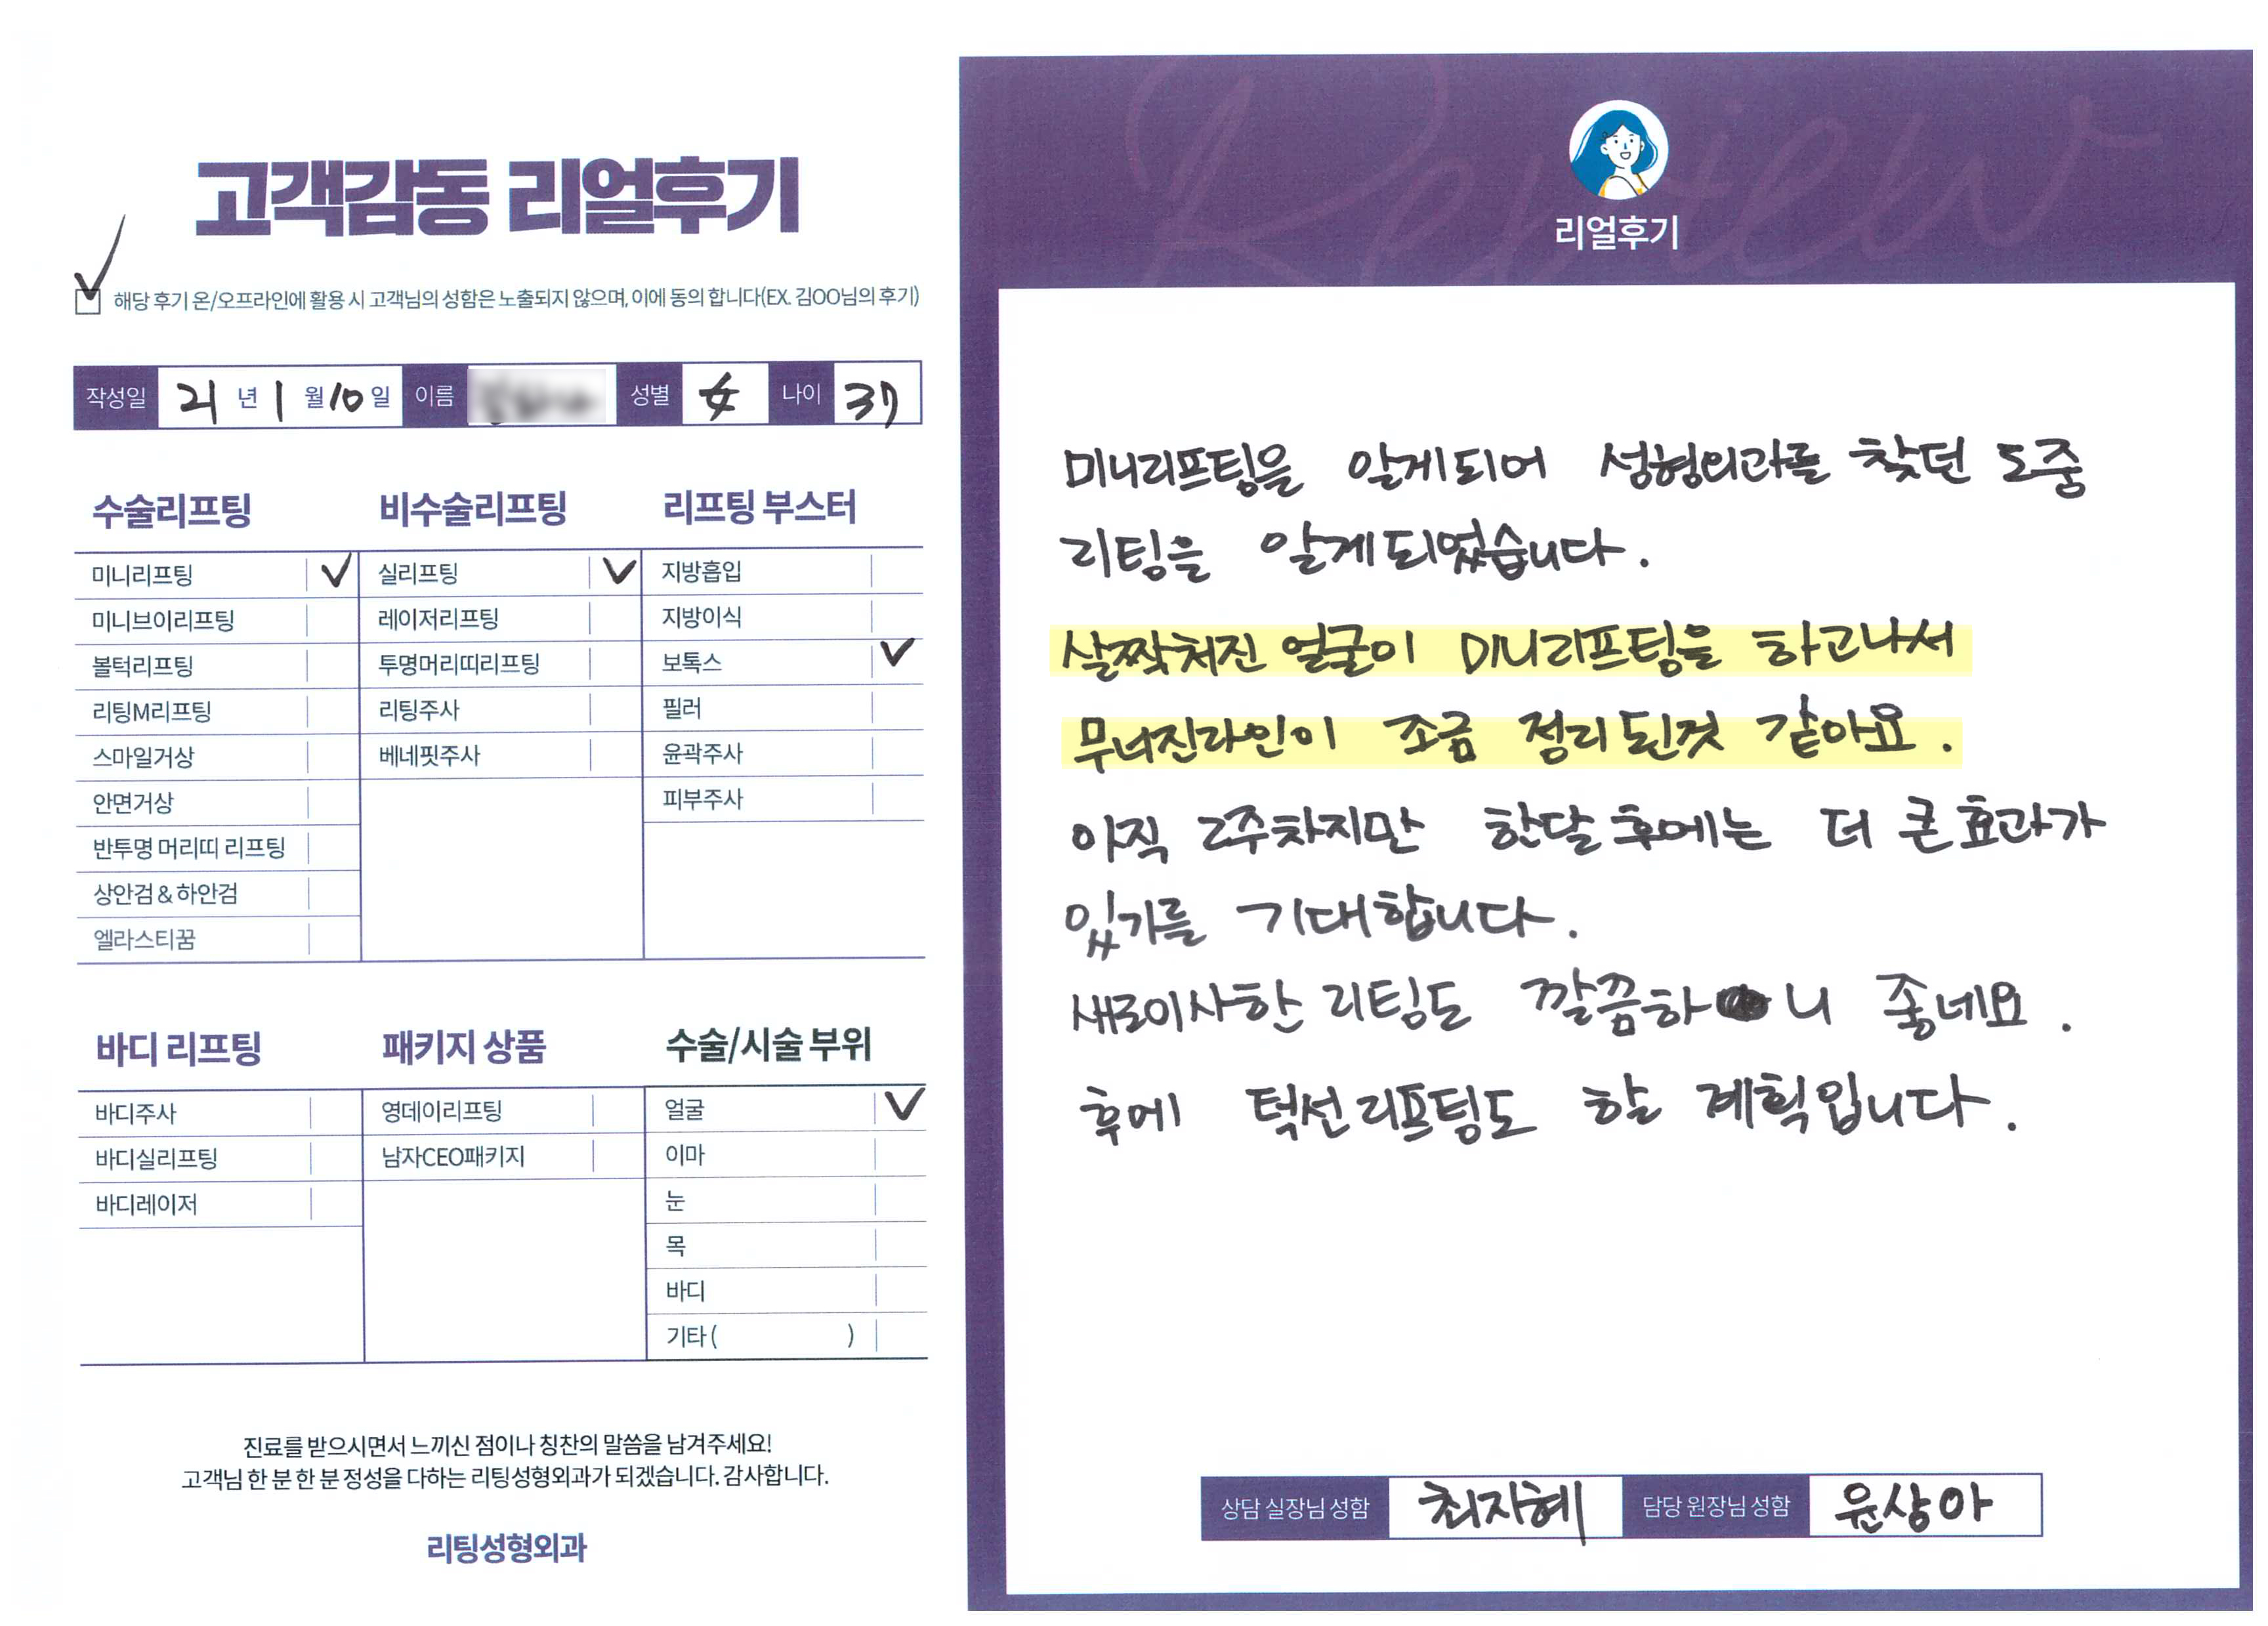 고객감동 리얼후기
해당 후기 온/오프라인에 활용 시 고객님의 성함은 노출되지 않으며, 이에 동의 합니다(EX. 김OO님의 후기)
작성일 21 년 1 월 10 일 이름 성별 女 나이 37
수술리프팅
미니리프팅 ✓
미니브이리프팅
볼턱리프팅
리팅M리프팅
스마일거상
안면거상
반투명 머리띠 리프팅
상안검 & 하안검
엘라스티꿈
비수술리프팅
실리프팅 ✓
레이저리프팅
투명머리띠리프팅
리팅주사
베네핏주사
리프팅 부스터
지방흡입
지방이식
보톡스 ✓
필러
윤곽주사
피부주사
바디 리프팅
바디주사
바디실리프팅
바디레이저
패키지 상품
영데이리프팅
남자CEO패키지
수술/시술 부위
얼굴 ✓
이마
눈
목
바디
기타 ( )
진료를 받으시면서 느끼신 점이나 칭찬의 말씀을 남겨주세요!
고객님 한 분 한 분 정성을 다하는 리팅성형외과가 되겠습니다. 감사합니다.
리팅성형외과
Review
리얼후기
미니리프팅을 알게되어 성형외과를 찾던 도중
리팅을 알게되었습니다.
살짝처진 얼굴이 미니리프팅을 하고나서
무너진라인이 조금 정리된것 같아요.
아직 2주차지만 한달후에는 더 큰효과가
있기를 기대합니다.
새로이사한 리팅도 깔끔하니 좋네요.
후에 턱선리프팅도 할 계획입니다.
상담 실장님 성함 최지혜 담당 원장님 성함 윤상아